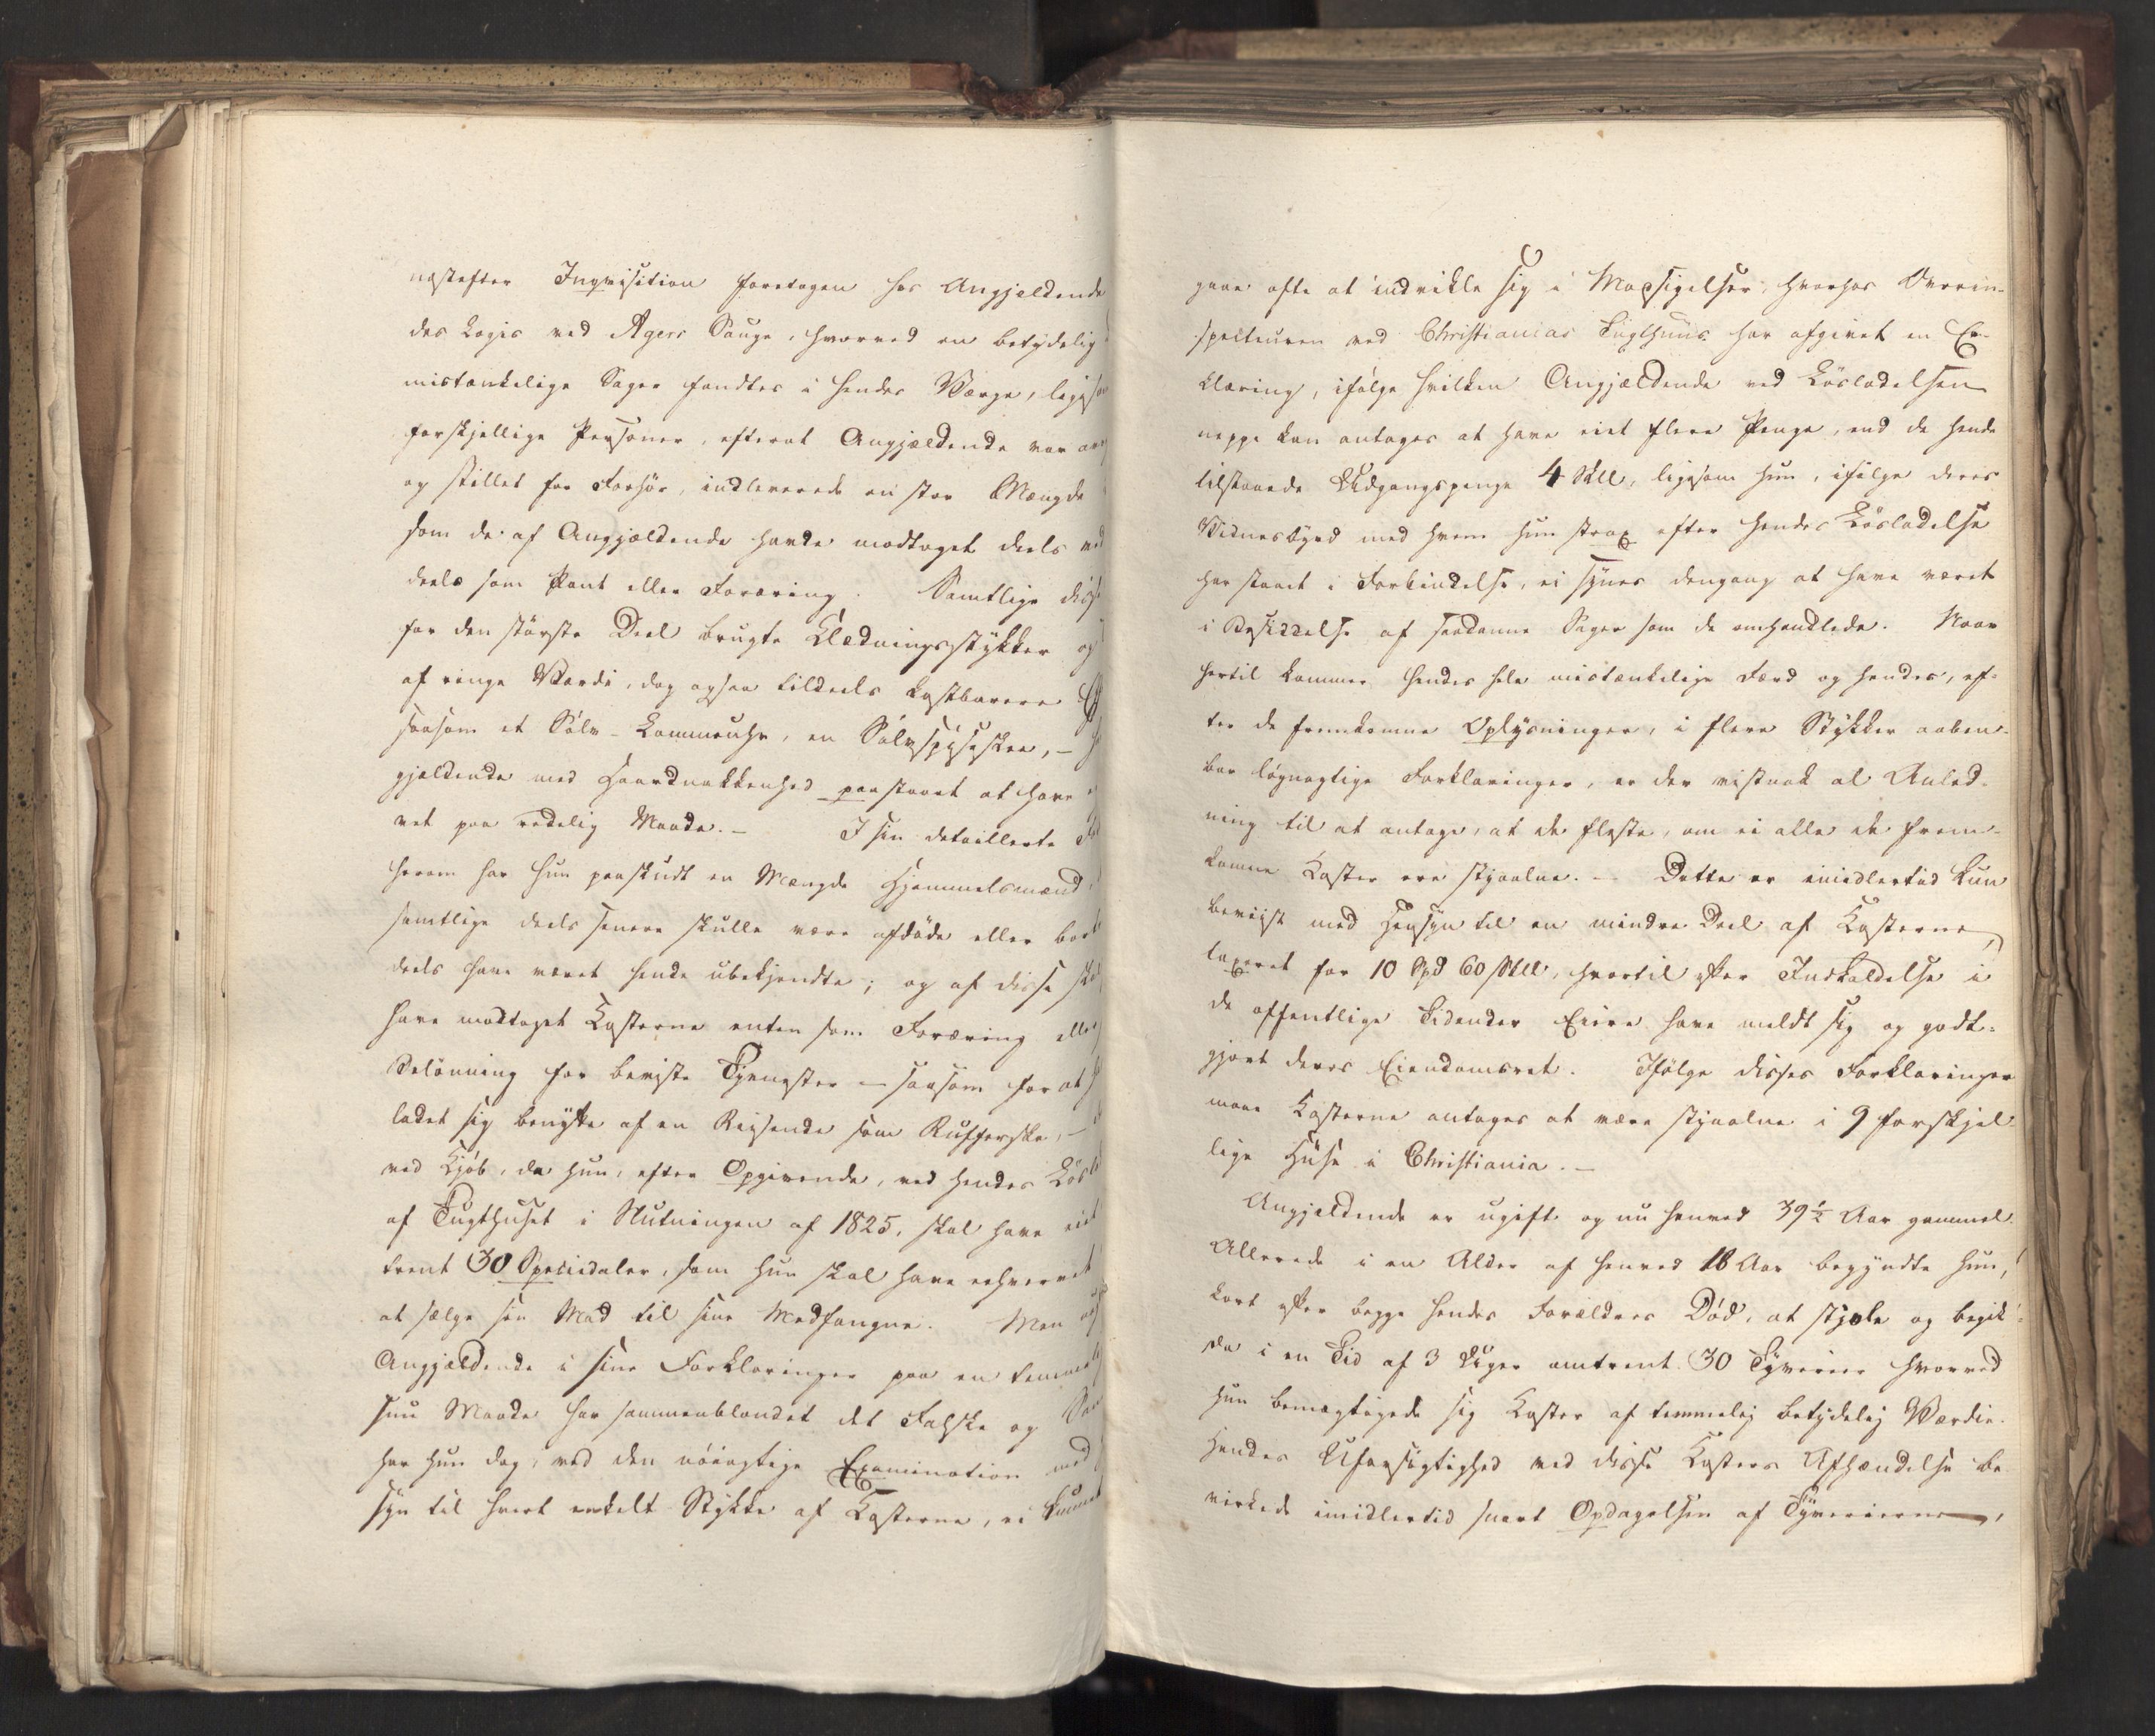 næstefter Inqvisition foretagen hos Angjeldende
des Logis ved Agers Sauge, hvorved en betydelig
mistænkelige Sager fandtes i hendes Værge, ligesom
forskjellige Personer, efterat Angjældende var
og stillet for Forhør, indleverede en stor Mængde
som de af Angjældende havde modtaget deels ved
deels som Pant eller Foræring. Samtlige disse
for den største Deel brugte Klædningsstykker og
af ringe Værdi, dog ogsaa tildeels kostbarere
saasom et Sølv-Lommeuhr, en Sølvspiseskee, –
gjeldende med Haardnakkenhed paastaaet at have
vet paa redelig Maade. – I sin detaillerte
herom har hun paaskudt en Mængde Hjemmelsmænd
samtlige deels senere skulle være afdøde eller
deels have været hende ubekjendte; og af disse
have modtaget Kosterne enten som Foræring eller
Belønning for beviste Tjenester – saasom for at
ladet sig benytte af en Reisende som Rufferske, –
ved Kjøb, da hun, efter Opgivende, ved hendes
af Tugthuset i Slutningen af 1825, skal have eiet
trent 30 Speciedaler, som hun skal have erhvervet
at sælge sin Mad til sine Medfangne. Men
Angjældende i sine Forklaringer paa en temmelig
snu Maade har sammenblandet det Falske og
har hun dog, ved den nøiagtige Examination med
syn til hvert enkelt Stykke af Kosterne, ei kunnet
gaae ofte at indvikle sig i Modsigelser, hvorhos Overin-
specteuren ved Christianias Tugthuus har afgivet en Er-
klæring, ifølge hvilken Angjældende ved Løsladelsen
neppe kan antages at have eiet flere Penge, end de hende
tilstaaede Udgangspenge 4 Skll, ligesom hun, ifølge deres
Vidnesbyrd med hvem hun strax efter hendes Løsladelse
har staaet i Forbindelse, ei synes dengang at have været
i Besiddelse af saadanne Sager som de omhandlede. Naar
hertil kommer hendes hele mistænkelige Færd og hendes, ef-
ter de fremkomne Oplysninger, i flere Stykker aaben-
bar løgnagtige Forklaringer, er der vistnok al Anled-
ning til at antage, at de fleste, om ei alle de frem-
komne Koster ere stjaalne. – Dette er imidlertid kun
beviist med Hensyn til en mindre Deel af Kosterne,
taxeret for 10 Spd 60 Skll, hvortil efter Indkaldelse i
de offentlige Tidender Eiere have meldt sig og godt-
gjort deres Eiendomsret. Ifølge disses Forklaringer
maae Kosterne antages at være stjaalne i 9 forskjel-
lige Huse i Christiania. –
Angjeldende er ugift og nu henved 39½ Aar gammel.
Allerede i en Alder af henved 18 Aar begyndte hun,
kort efter begge hendes Forældres Død, at stjæle og begik
da i en Tid af 3 Uger omtrent 30 Tyverier hvorved
hun bemægtigede sig Koster af temmelig betydelig Værdie.
Hendes Uforsigtighed ved disse Kosters Afhændelse be-
virkede imidlertid snart Opdagelsen af Tyverierne,